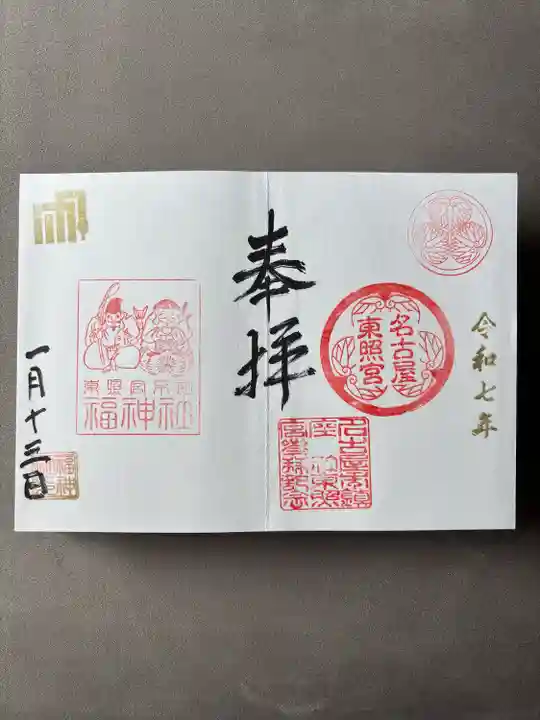 令和七年
名古屋
東照宮
奉拝
東照宮
福神社
一月十三日